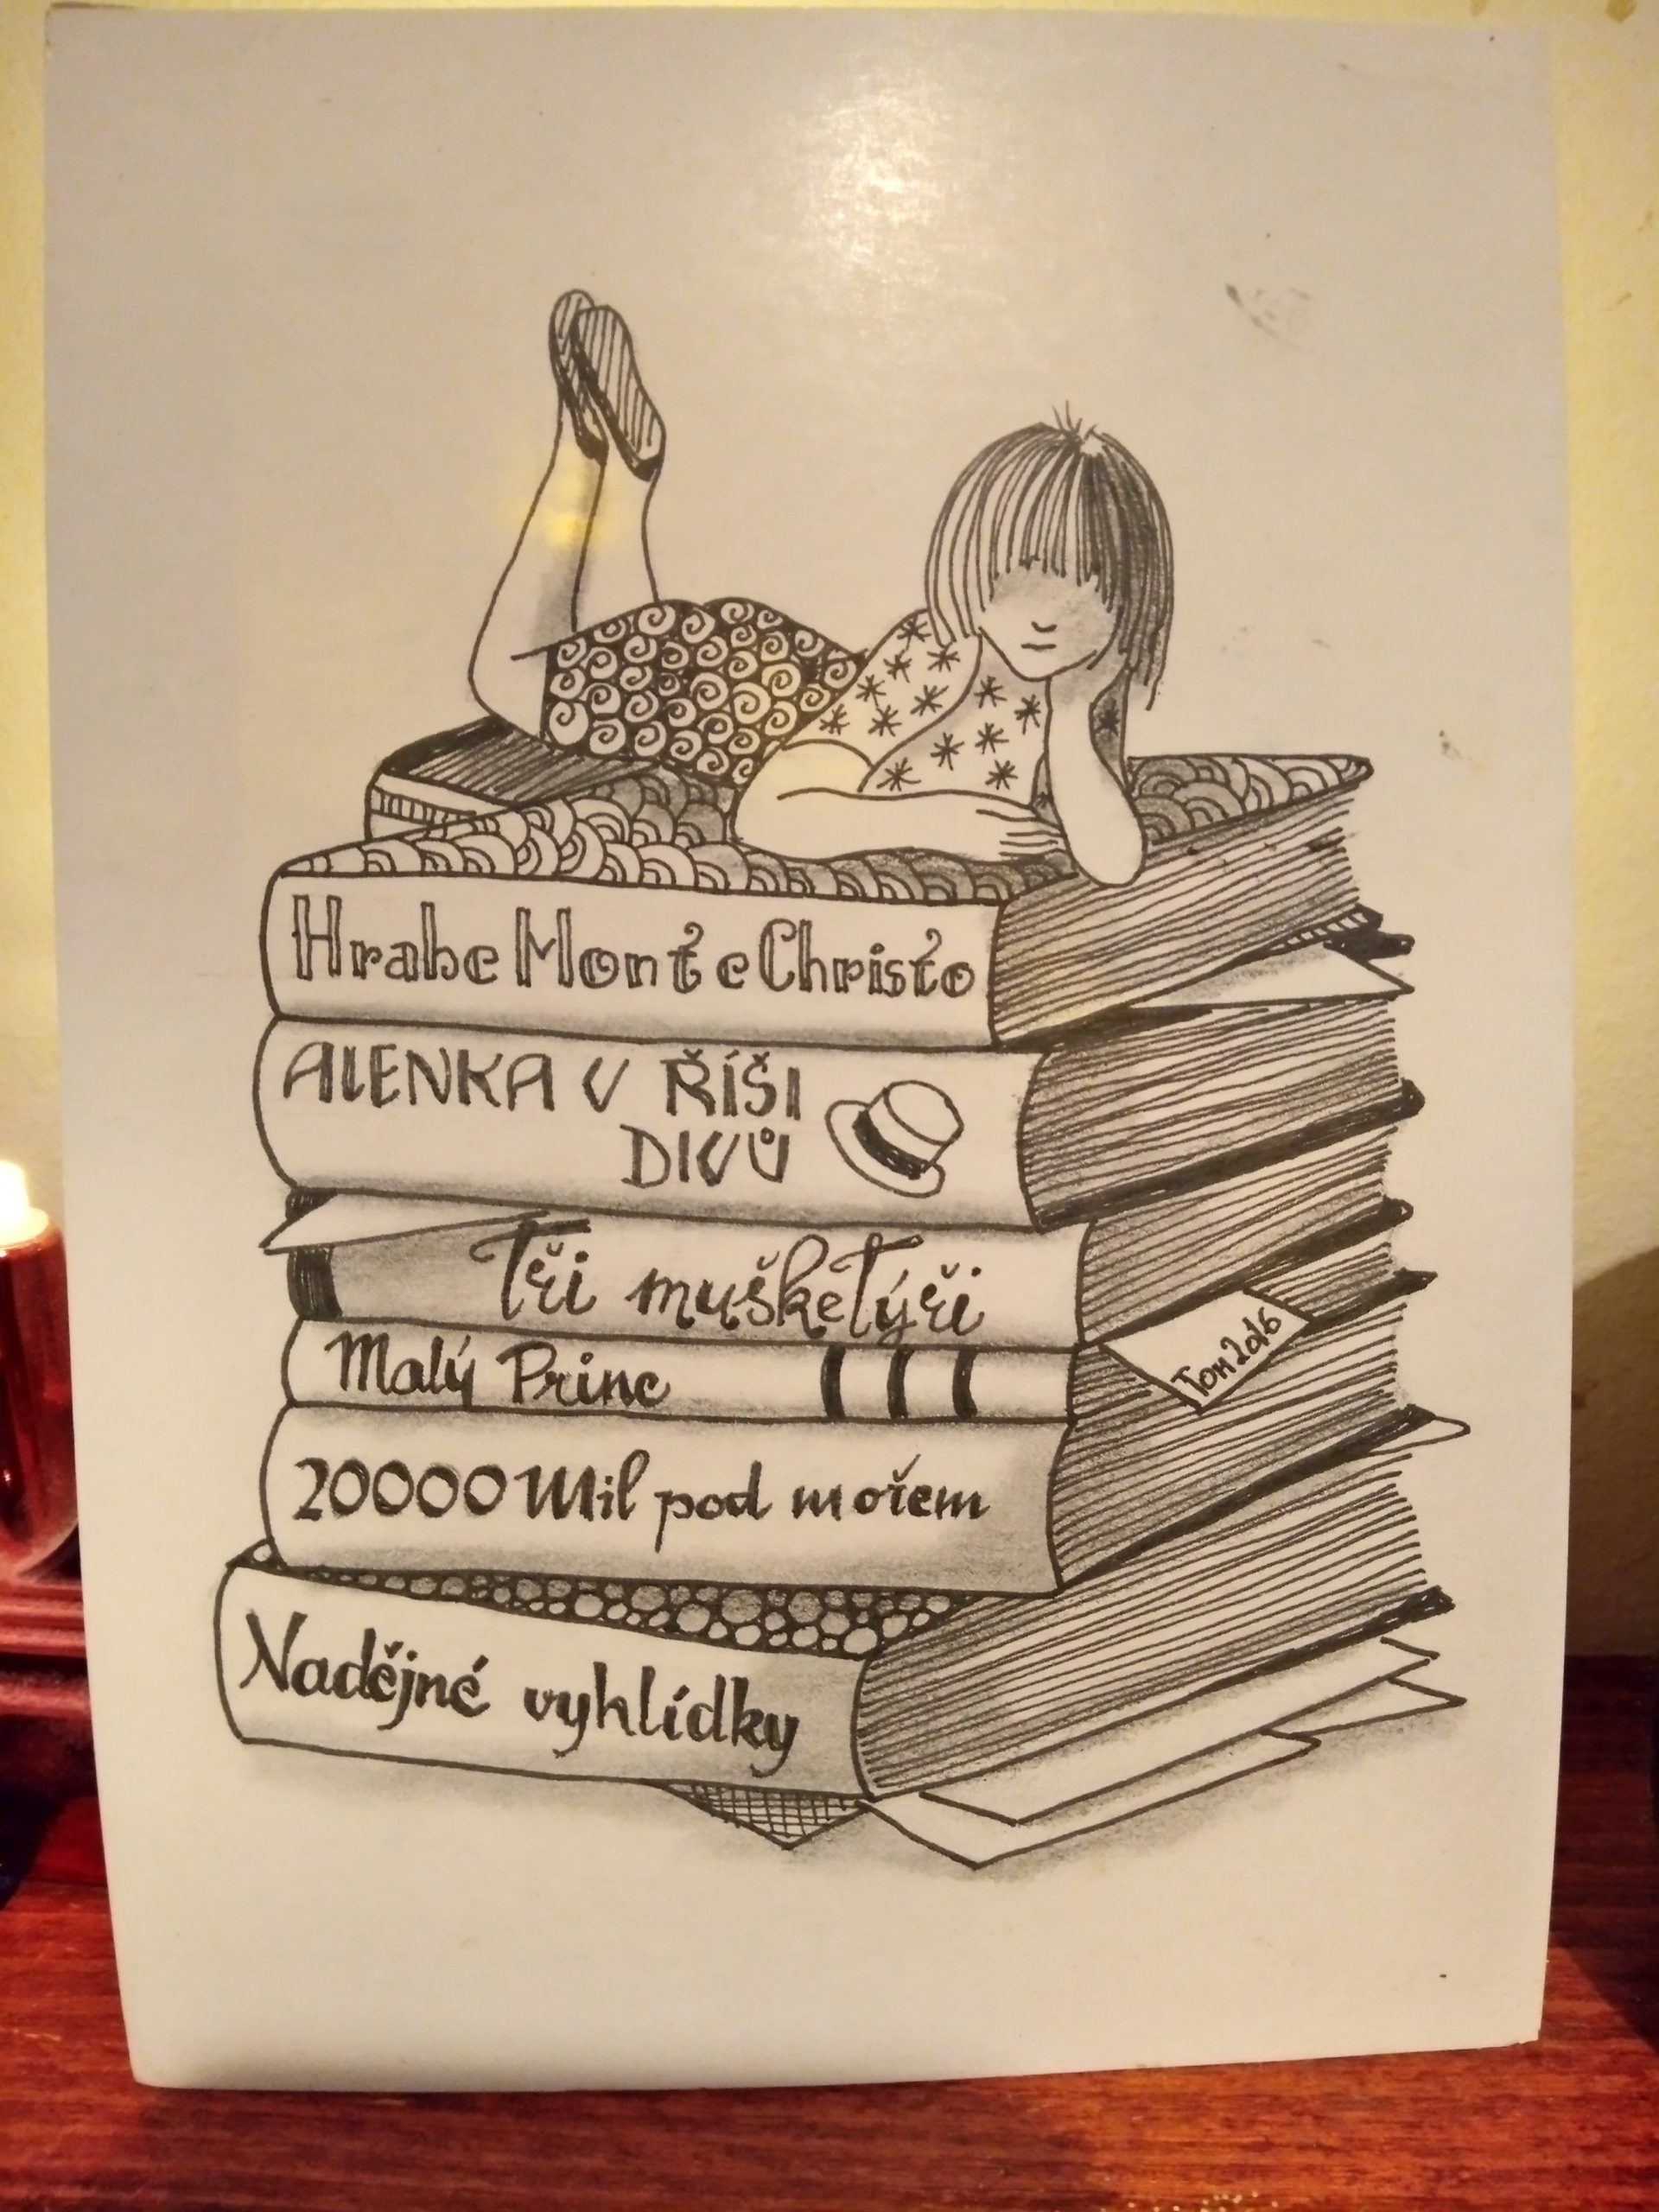 Hrabe Monte Christo
ALENKA V ŘÍŠI
DIVŮ
Tři mušketýři
Malý Princ
Tom 2016
20000 Mil pod mořem
Nadějné vyhlídky